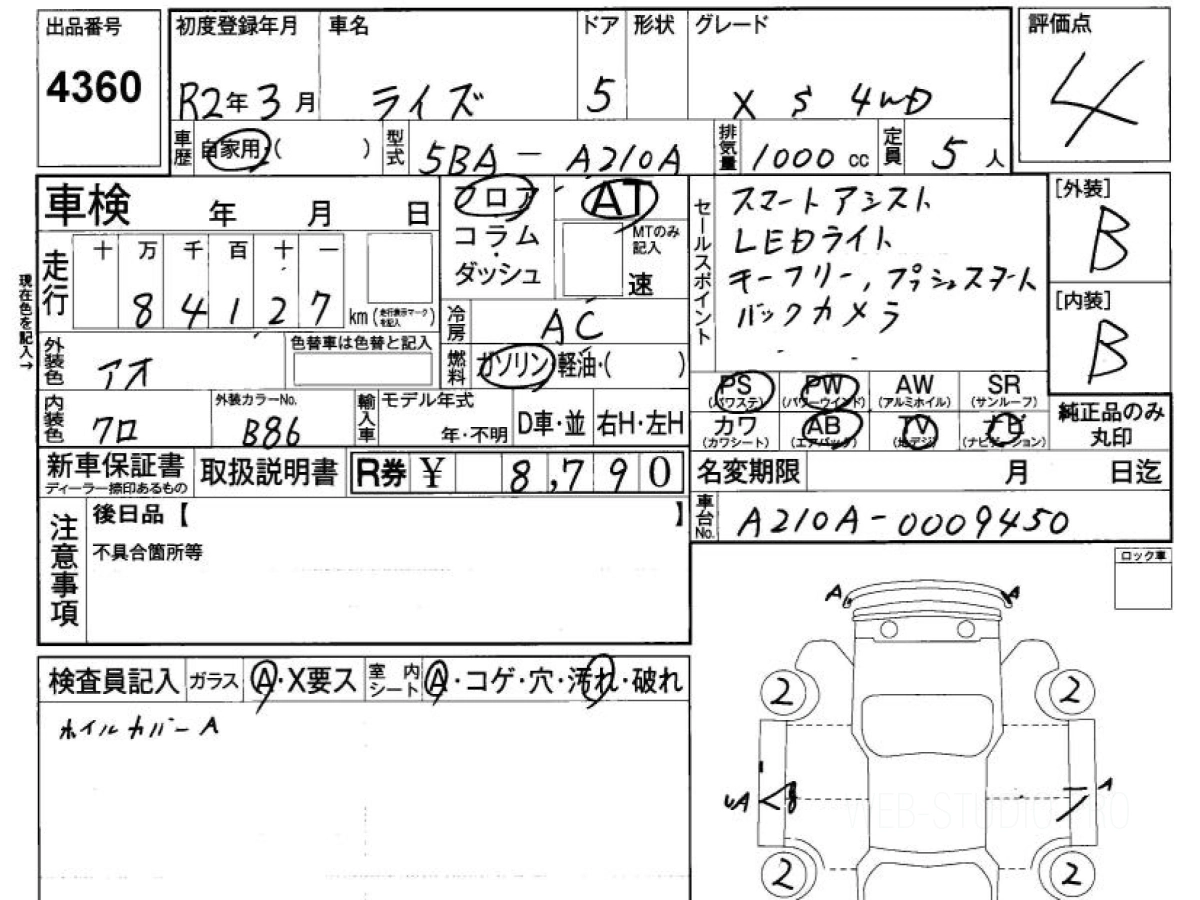 出品番号
4360
初度登録年月 車名 ドア 形状 グレード
R2年3月 ライズ 5 X S 4WD
評価点
4
車歴 自家用・( ) 型式 5BA-A210A 排気量 1000 cc 定員 5人
車検 年 月 日
フロア
コラム
・
ダッシュ
AT
MTのみ
記入
速
セールスポイント
スマートアシスト
LEDライト
キーフリー,プッシュスタート
バックカメラ
[外装]
B
[内装]
B
現在色を記入→
走行 十 万 千 百 十 一
8 4 1 2 7 km (走行表示マークを記入)
冷房 AC
外装色 アオ
色替車は色替と記入
燃料 ガソリン・軽油・( )
内装色 クロ
外装カラーNo.
B86
輸入車 モデル年式
年・不明 D車・並 右H・左H
PS (パワステ) PW (パワーウインド) AW (アルミホイル) SR (サンルーフ)
カワ (カワシート) AB (エアバック) TV (地デジ) ナビ (ナビゲーション)
純正品のみ
丸印
新車保証書
ディーラー捺印あるもの
取扱説明書 R券 ¥ 8,790
名変期限 月 日迄
車台No. A210A-0009450
注意事項
後日品【 】
不具合箇所等
ロック車
検査員記入 ガラス A・X要ス 室内シート A・コゲ・穴・汚れ・破れ
ホイルカバーA
A A
2 2
UA A
2 2
WEB-STUDIO.PRO